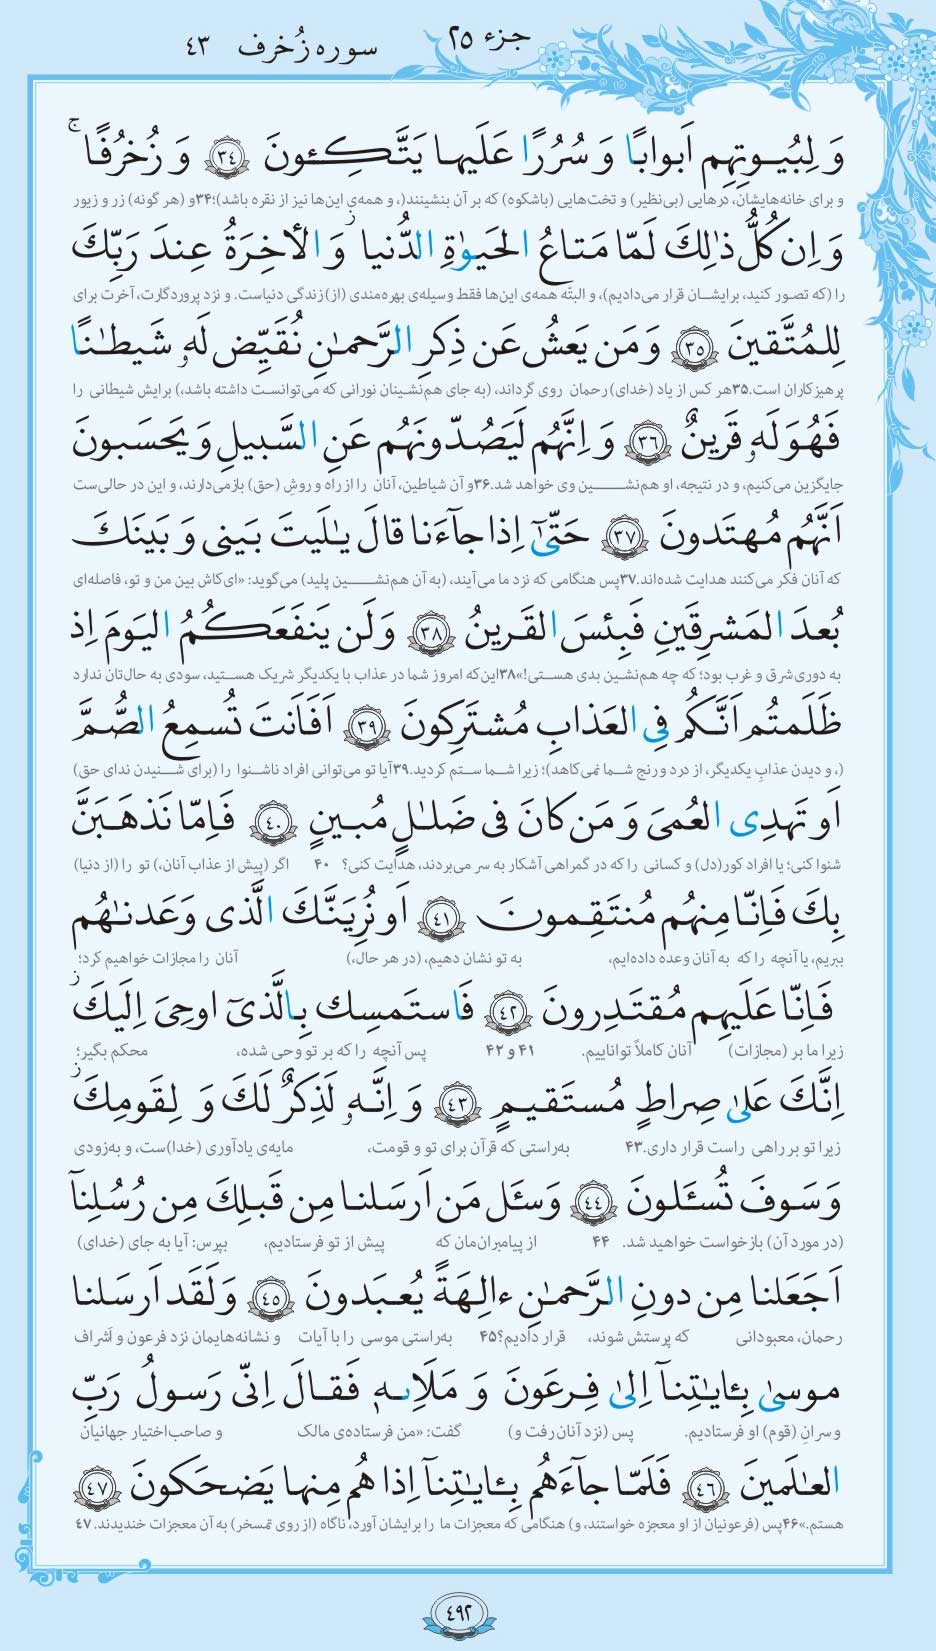 جزء ۲۵
سوره زُخرف ۴۳
وَ لِبُيـوتِهِم اَبوابًا وَ سُرُرًا عَلَيها يَتَّكِـٔونَ ﴿٣٤﴾ وَ زُخرُفًا ۚ
و برای خانه‌هایشان، درهایی (بی‌نظیر) و تخت‌هایی (باشکوه) که بر آن بنشینند(، و همه‌ی این‌ها نیز از نقره باشد)؛۳۴و (هر گونه) زر و زیور
وَ اِن كُلُّ ذٰلِكَ لَمّا مَتاعُ الحَيوٰةِ الدُّنيا ۚ وَ الاٴخِرَةُ عِندَ رَبِّكَ
را (که تصور کنید، برایشـان قرار می‌دادیم)، و البتّه همه‌ی این‌ها فقط وسیله‌ی بهره‌مندی (از) زندگی دنیاست. و نزد پروردگارت، آخرت برای
لِلمُتَّقينَ ﴿٣٥﴾ وَ مَن يَعشُ عَن ذِكرِ الرَّحمٰنِ نُقَيِّض لَهٗ شَيطٰنًا
پرهیزکاران است.۳۵هر کس از یاد (خدای) رحمان روی گرداند، (به جای هم‌نشینان نورانی که می‌توانست داشته باشد،) برایش شیطانی را
فَهُوَ لَهٗ قَرينٌ ﴿٣٦﴾ وَ اِنَّهُم لَيَصُدّونَهُم عَنِ السَّبيلِ وَ يَحسَبونَ
جایگزین می‌کنیم، و در نتیجه، او هم‌نشـــین وی خواهد شد.۳۶و آن شیاطین، آنان را از راه و روشِ (حق) بازمی‌دارند، و این در حالی‌ست
اَنَّهُم مُهتَدونَ ﴿٣٧﴾ حَتّىٰٓ اِذا جآءَنا قالَ يٰلَيتَ بَينى وَ بَينَكَ
که آنان فکر می‌کنند هدایت شده‌اند.۳۷پس هنگامی که نزد ما می‌آیند، (به آن هم‌نشـــین پلید) می‌گوید: «ای‌کاش بین من و تو، فاصله‌ای
بُعدَ المَشرِقَينِ فَبِئسَ القَرينُ ﴿٣٨﴾ وَلَن يَنفَعَكُمُ اليَومَ اِذ
به دوری شرق و غرب بود؛ که چه هم‌نشین بدی هستی!»۳۸این‌که امروز شما در عذاب با یکدیگر شریک هستید، سودی به حال‌تان ندارد
ظَلَمتُم اَنَّكُم فِى العَذابِ مُشتَرِكونَ ﴿٣٩﴾ اَفَاَنتَ تُسمِعُ الصُّمَّ
(، و دیدن عذابِ یکدیگر، از درد و رنج شما نمی‌کاهد)؛ زیرا شما ستم کردید.۳۹آیا تو می‌توانی افراد ناشنوا را (برای شنیدن ندای حق)
اَو تَهدِى العُمىَ وَ مَن كانَ فى ضَلٰلٍ مُبينٍ ﴿٤٠﴾ فَاِمّا نَذهَبَنَّ
شنوا کنی؛ یا افراد کور(دل) و کسانی را که در گمراهی آشکار به سر می‌بردند، هدایت کنی؟ ۴۰ اگر (پیش از عذاب آنان،) تو را (از دنیا)
بِكَ فَاِنّا مِنهُم مُنتَقِمونَ ﴿٤١﴾ اَو نُرِيَنَّكَ الَّذى وَعَدنٰهُم
ببریم، یا آنچه را که به آنان وعده داده‌ایم، به تو نشان دهیم، (در هر حال،) آنان را مجازات خواهیم کرد؛
فَاِنّا عَلَيهِم مُقتَدِرونَ ﴿٤٢﴾ فَاستَمسِك بِالَّذىٓ اوحِىَ اِلَيكَ ۖ
زیرا ما بر (مجازات) آنان کاملاً تواناییم. ۴۱ و ۴۲ پس آنچه را که بر تو وحی شده، محکم بگیر؛
اِنَّكَ عَلىٰ صِراطٍ مُستَقيمٍ ﴿٤٣﴾ وَ اِنَّهٗ لَذِكرٌ لَكَ وَ لِقَومِكَ ۖ
زیرا تو بر راهی راست قرار داری.۴۳ به‌راستی که قرآن برای تو و قومت، مایه‌ی یادآوری (خدا)ست، و به‌زودی
وَ سَوفَ تُسـَٔلونَ ﴿٤٤﴾ وَسـَٔل مَن اَرسَلنا مِن قَبلِكَ مِن رُسُلِنآ
(در مورد آن) بازخواست خواهید شد. ۴۴ از پیامبران‌مان که پیش از تو فرستادیم، بپرس: آیا به جای (خدای)
اَجَعَلنا مِن دونِ الرَّحمٰنِ ءالِهَةً يُعبَدونَ ﴿٤٥﴾ وَ لَقَد اَرسَلنا
رحمان، معبودانی که پرستش شوند، قرار دادیم؟۴۵ به‌راستی موسی را با آیات و نشانه‌هایمان نزد فرعون و اَشراف
موسىٰ بِـٔايٰتِنآ اِلىٰ فِرعَونَ وَ مَلَا۟ئِهٖ فَقالَ اِنّى رَسولُ رَبِّ
و سرانِ (قوم) او فرستادیم. پس (نزد آنان رفت و) گفت: «من فرستاده‌ی مالک و صاحب‌اختیار جهانیان
العٰلَمينَ ﴿٤٦﴾ فَلَمّا جآءَهُم بِـٔايٰتِنآ اِذا هُم مِنها يَضحَكونَ ﴿٤٧﴾
هستم.»۴۶پس (فرعونیان از او معجزه خواستند، و) هنگامی که معجزات ما را برایشان آورد، ناگاه (از روی تمسخر) به آن معجزات خندیدند.۴۷
٤٩٢